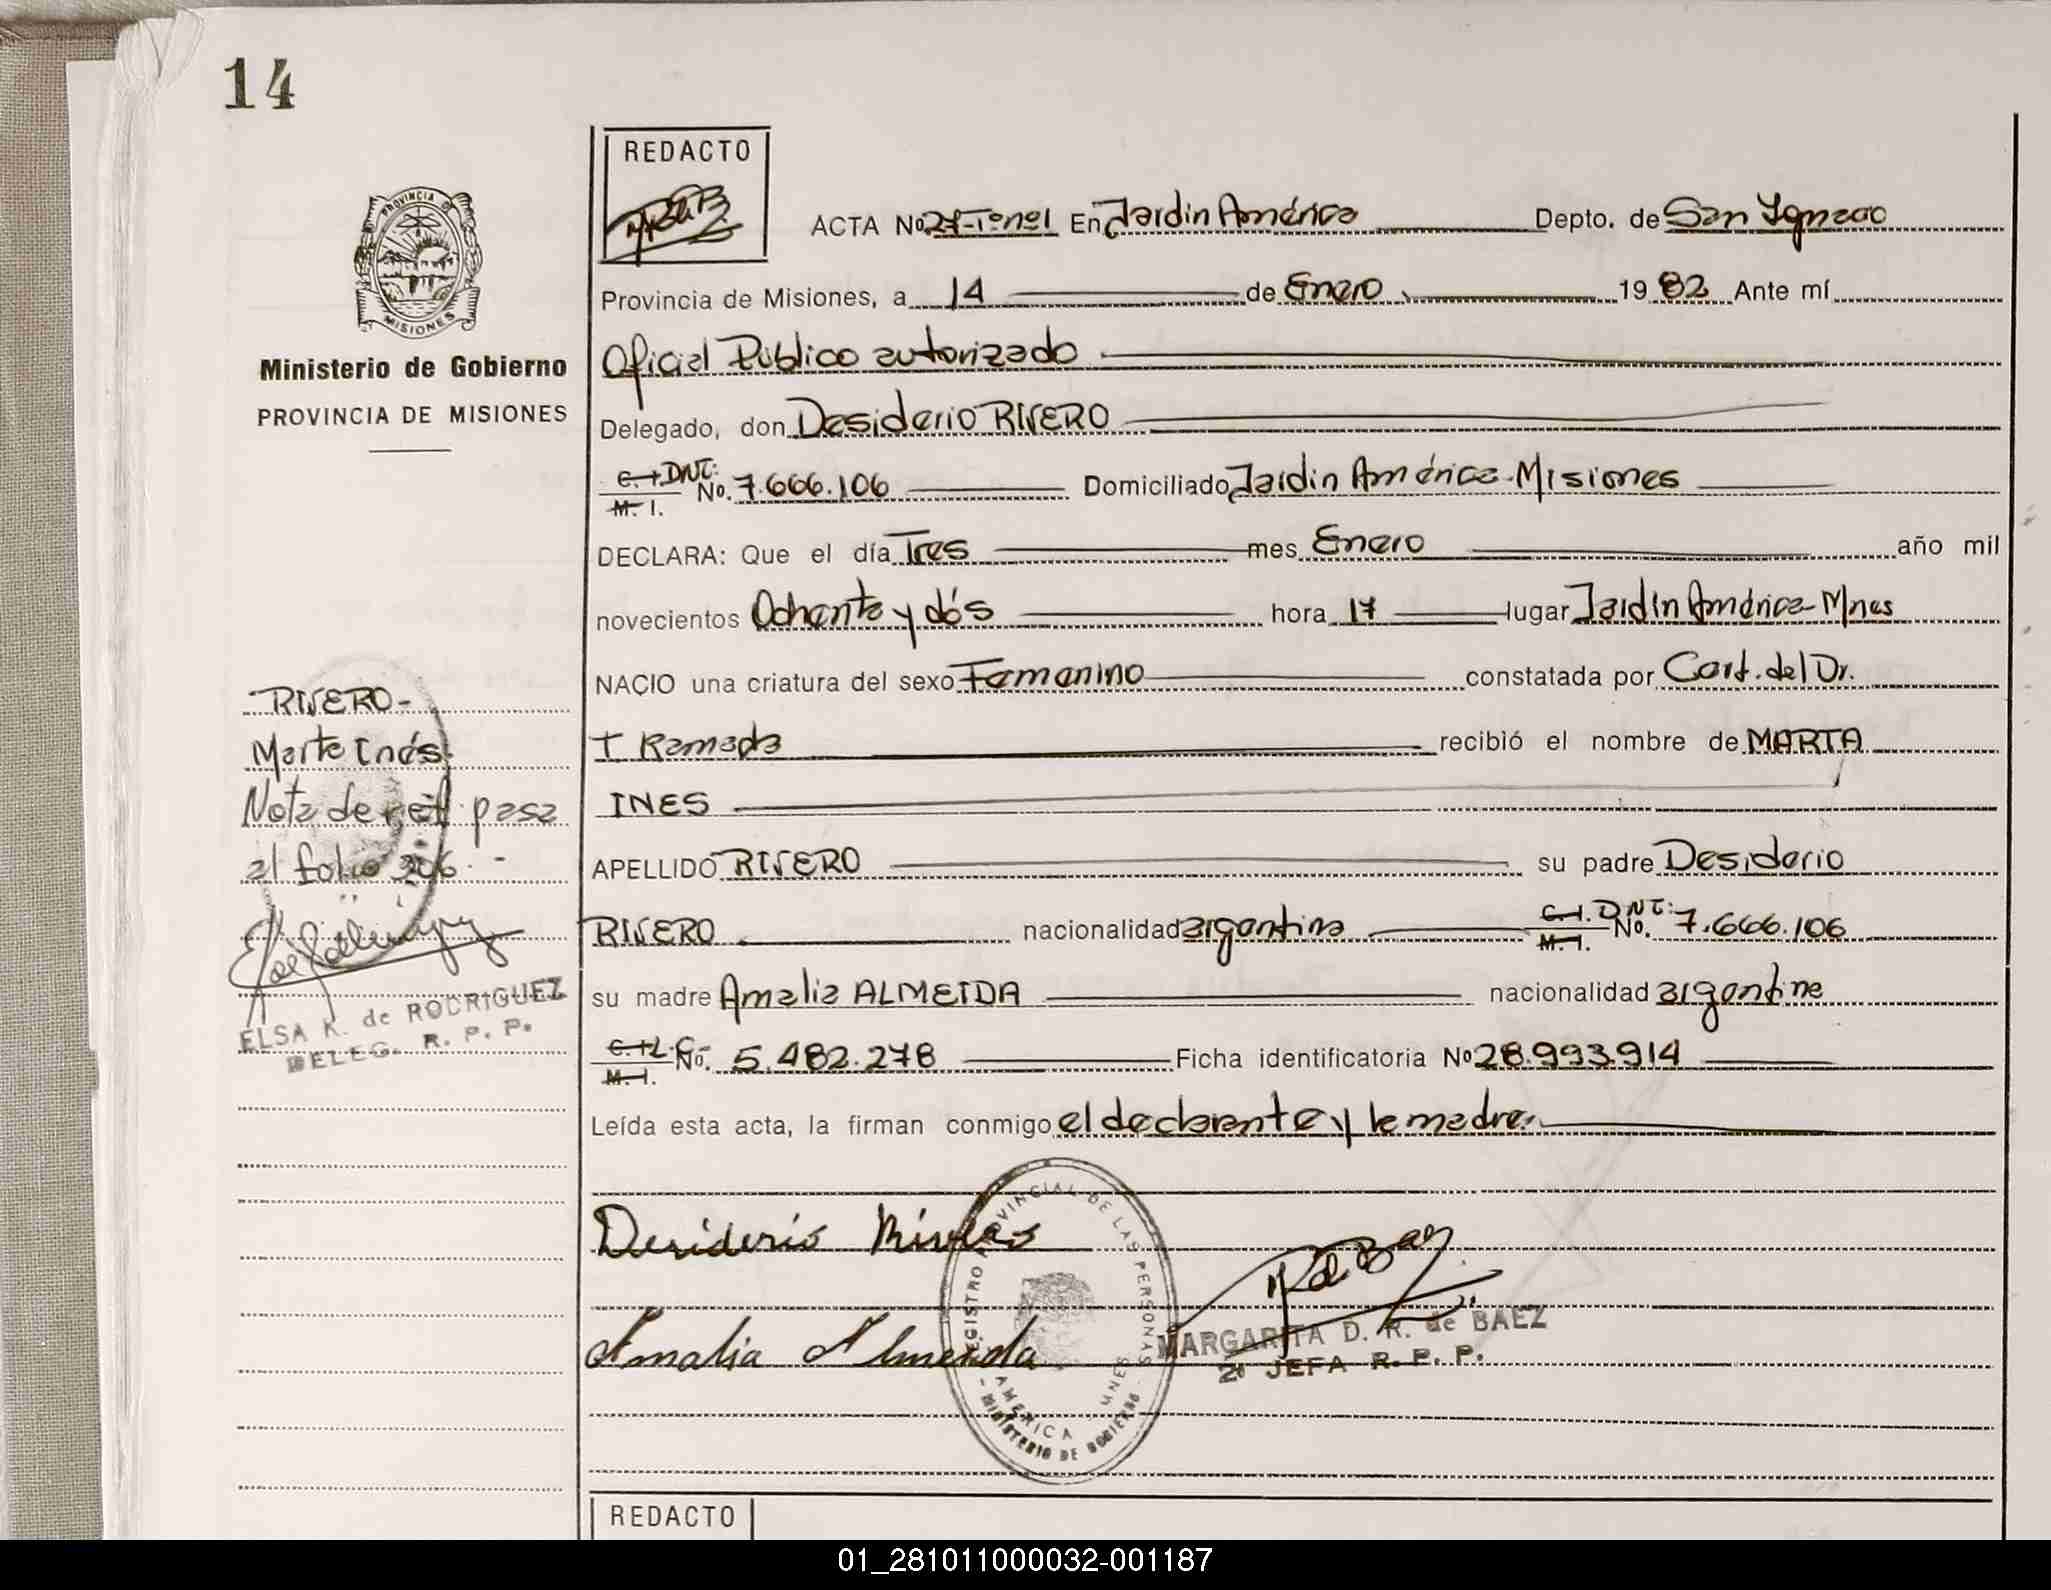 14
REDACTO
PROVINCIA DE
MISIONES
Ministerio de Gobierno
PROVINCIA DE MISIONES
ACTA No 27-Tº nº1 En Jardin América Depto. de San Ignacio
Provincia de Misiones, a 14 de Enero 1982 Ante mí
Oficial Publico autorizado
Delegado, don Desiderio RIVERO
C. I. DNI: M. I. No. 7.666.106 Domiciliado Jardin América-Misiones
DECLARA: Que el día Tres mes Enero año mil
novecientos Ochenta y dós hora 17 lugar Jardin América-Mnes
NACIO una criatura del sexo Femenino constatada por Cert. del Dr.
T. Ramada recibió el nombre de MARTA
INES
APELLIDO RIVERO su padre Desiderio
RIVERO nacionalidad argentina C. I. DNI: M. I. No. 7.666.106
su madre Amalia ALMEIDA nacionalidad argentina
C. I. L.C. M. I. No. 5.482.278 Ficha identificatoria Nº 28.993.914
Leída esta acta, la firman conmigo el declarante y la madre.
Desiderio Rivero
Amalia Almeida
REGISTRO PROVINCIAL DE LAS PERSONAS
AMERICA MNES
MINISTERIO DE GOBIERNO
MARGARITA D. R. de BAEZ
2º JEFA R. P. P.
RIVERO-
Marta Inés
Nota de ref. pasa
al folio 306.-
ELSA K. de RODRIGUEZ
DELEG. R. P. P.
REDACTO
01_281011000032-001187